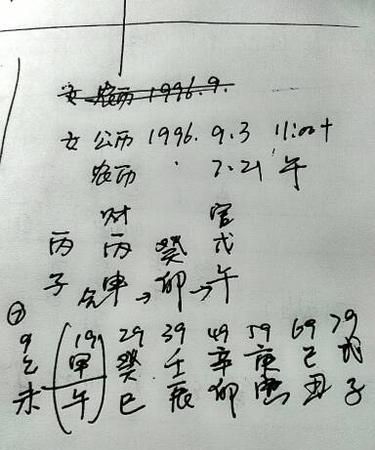 女 农历 1996.9.
女 公历 1996. 9.3 11:00+
农历 7.21 午
财 官
丙 丙 癸 戊
子 申→卯→午
⑦
9 19 29 39 49 59 69 79
乙 甲 癸 壬 辛 庚 己 戊
未 午 巳 辰 卯 寅 丑 子